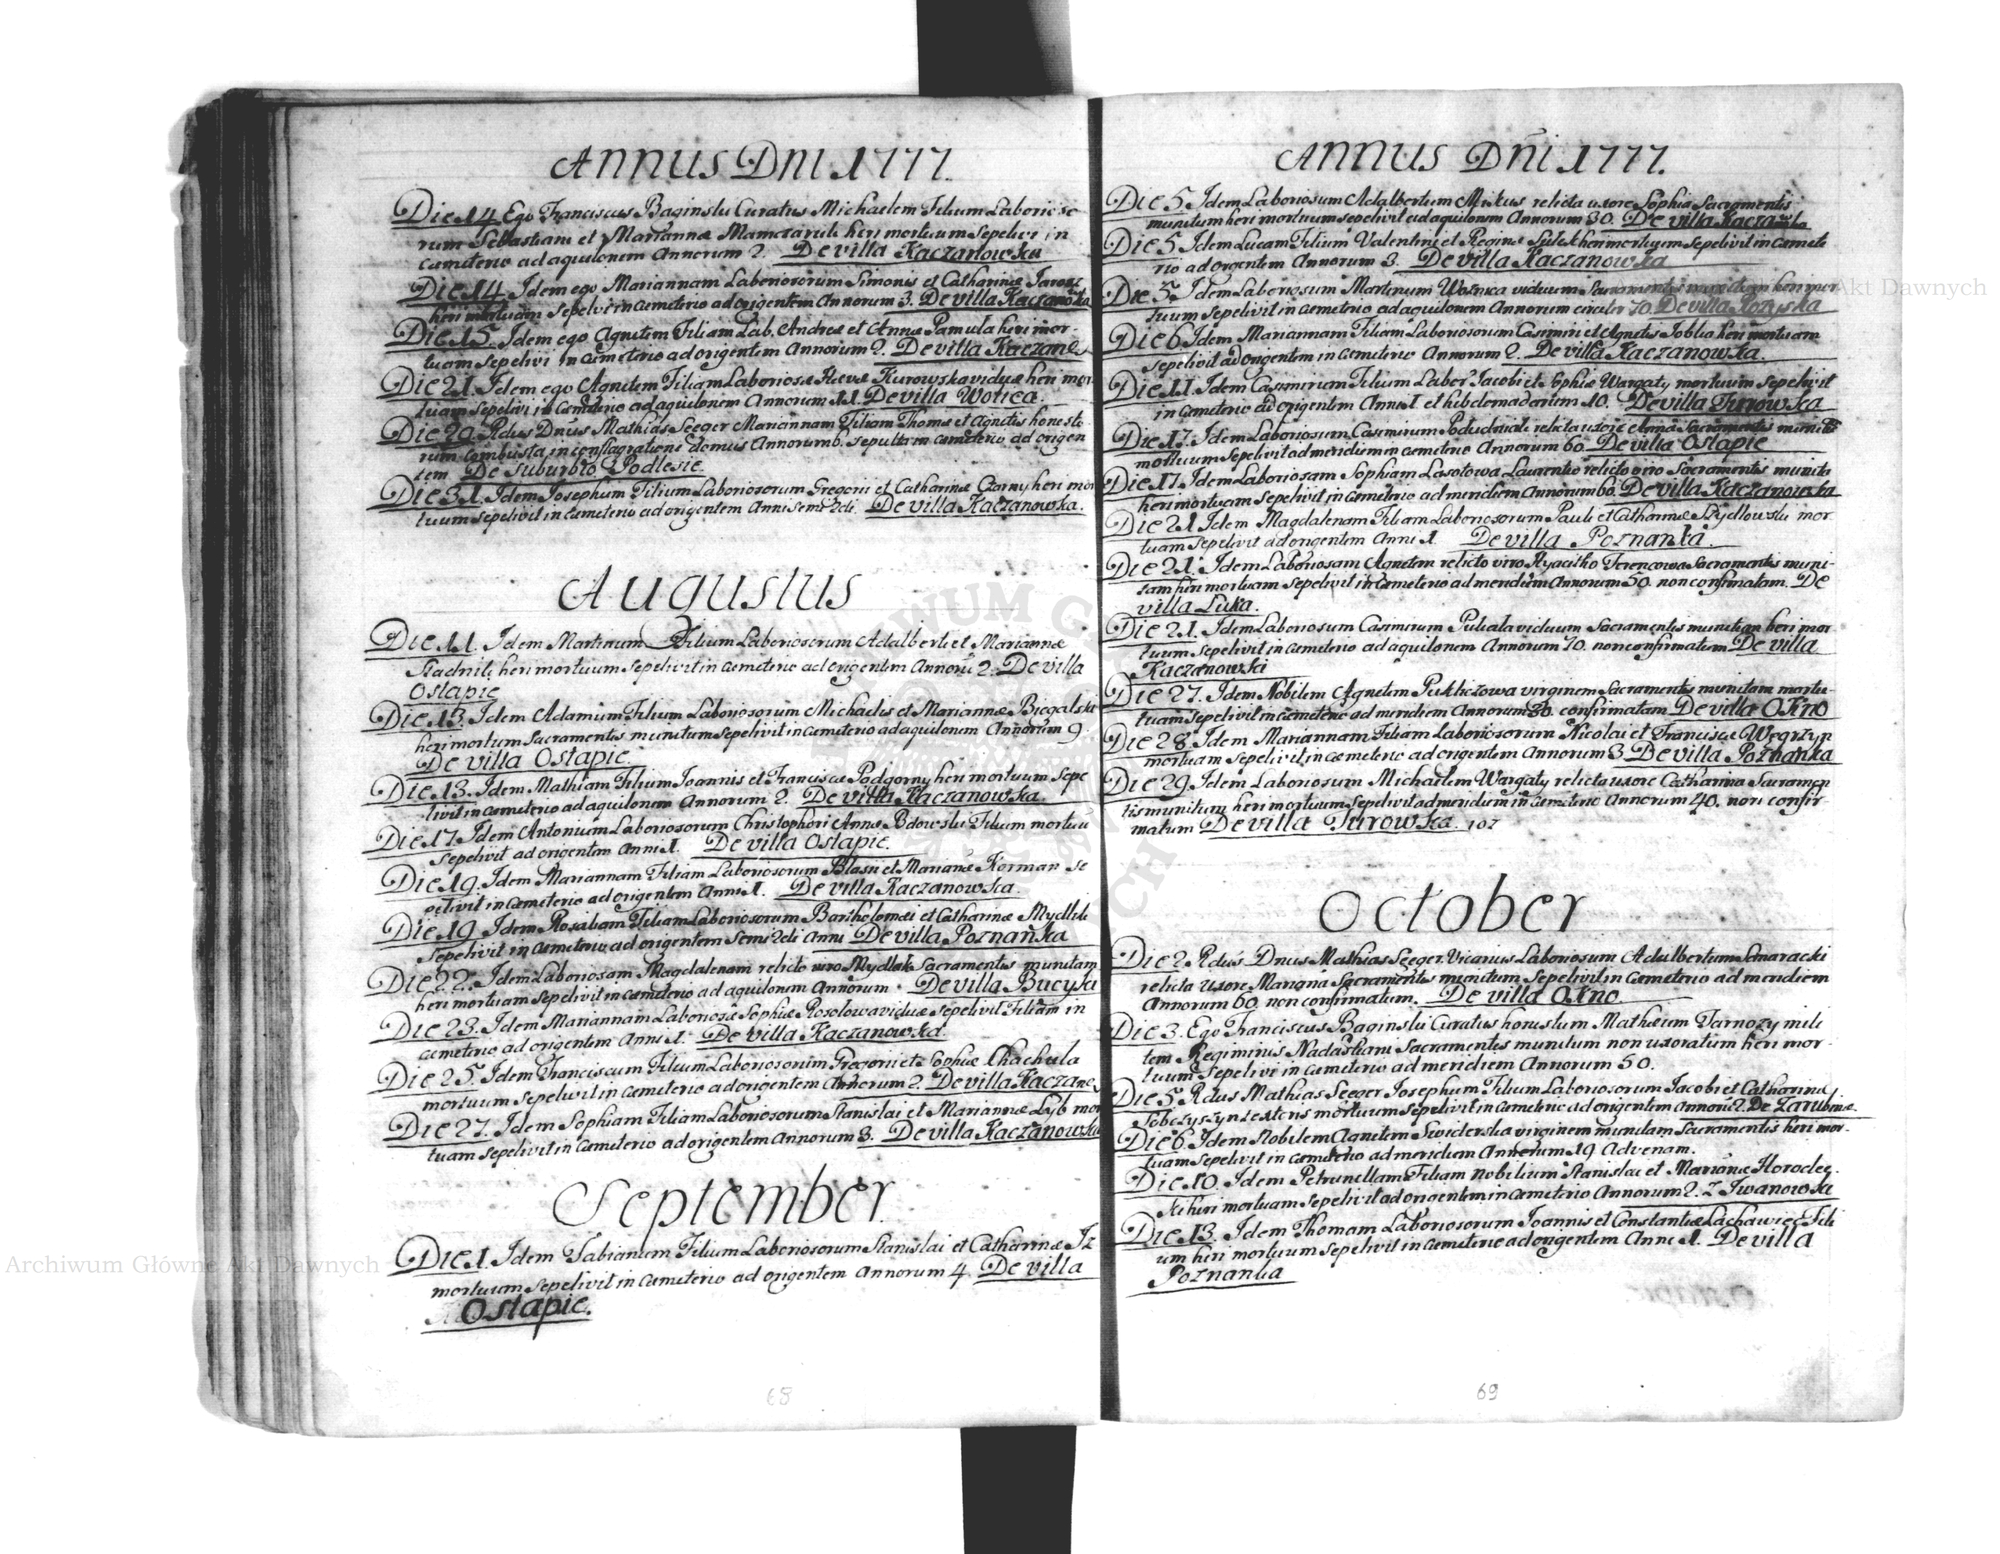 Annus Dni 1777.
Die 14 Ego Franciscus Baginski Curatus Michaelem Filium Laborioso
rum Sebastiani et Mariannæ heri mortuum Sepelivi in
cæmeterio ad aquilonem Annorum 2. De villa Kaczanowka
Die 14 Idem ego Mariannam Laboriosorum Simonis et Catharinæ
heri mortuam Sepelivi in cæmeterio ad origentem Annorum 3. De villa Kaczanowka
Die 15. Idem ego Agnetem Filiam Lab. Andreæ et Annæ Pamula heri mor-
tuam Sepelivi in cæmeterio ad origentem Annorum 2. De villa Kaczano
Die 21. Idem ego Agnetem Filiam Laboriosæ Hevæ Kurowska viduæ heri mor
tuam Sepelivi in cæmeterio ad aquilonem Annorum 11. De villa Wolica.
Die 29. Rdus Dnus Mathias Seeger Mariannam Filiam Thomæ et Agnetis honesto
rum combusta in conflagratione domus Annorum 6. sepulta in cæmeterio ad origen
tem De suburbio Podlesie.
Die 31. Idem Josephum Filium Laboriosorum Gregorii et Catharinæ Czarny heri mor
tuum sepelivit in cæmeterio ad origentem Anni semi De villa Kaczanowka.
Augustus
Die 11. Idem Martinum Filium Laboriosorum Adalberti et Mariannæ
Stadnik heri mortuum sepelivit in cæmeterio ad origentem Annoru 2. De villa
Ostapie
Die 13. Idem Adamum Filium Laboriosorum Michaelis et Mariannæ Biegalski
heri mortuum Sacramentis munitum sepelivit in cæmeterio ad aquilonem Annorum 9
De villa Ostapie.
Die 13. Idem Mathiam Filium Joannis et Franciscæ Podgorny heri mortuum sepe
livit in cæmeterio ad aquilonem Annorum 2. De villa Kaczanowka.
Die 17 Idem Antonium Laboriosorum Christophori Annæ Filium mortuu
sepelivit ad origentem Anni 1. De villa Ostapie.
Die 19. Idem Mariannam Filiam Laboriosorum Blasii et Mariannæ Korman se
pelivit in cæmeterio ad origentem Anni 1. De villa Kaczanowka.
Die 19 Idem Rosaliam Filiam Laboriosorum Bartholomæi et Catharinæ
Sepelivit in cæmeterio ad origentem semi Anni De villa Poznanka
Die 22. Idem Laboriosam Magdalenam relicto viro Sacramentis munitam
heri mortuam sepelivit in cæmeterio ad aquilonem Annorum. De villa Bucyki
Die 23. Idem Mariannam Laboriosæ Sophiæ viduæ sepelivit Filiam in
cæmeterio ad origentem Anni 1. De villa Kaczanowka.
Die 25. Idem Franciscum Filium Laboriosorum Gregorii et Sophiæ Chachula
mortuum sepelivit in cæmeterio ad origentem Annorum 2. De villa Kaczano
Die 27. Idem Sophiam Filiam Laboriosorum Stanislai et Mariannæ mor
tuam sepelivit in cæmeterio ad origentem Annorum 3. De villa Kaczanowka
September
Die 1. Idem Fabianum Filium Laboriosorum Stanislai et Catharinæ
mortuum sepelivit in cæmeterio ad origentem Annorum 4. De villa
Ostapie.
68
Annus Dni 1777.
Die 5 Idem Laboriosum Adalbertum relicta uxore Sophia Sacramentis
munitum heri mortuum sepelivit ad aquilonem Annorum 30. De villa
Die 5 Idem Lucam Filium Valentini et Reginæ heri mortuum Sepelivit in cæmete
rio ad origentem Annorum 3. De villa Kaczanowka
Die 5 Idem Laboriosum Martinum viduum Sacramentis munitum heri mor
tuum Sepelivit in cæmeterio ad aquilonem Annorum circiter 70. De villa
Die 6 Idem Mariannam Filiam Laboriosorum Casimiri et Agnetis heri mortuam
sepelivit ad origentem in cæmeterio Annorum 2. De villa Kaczanowka.
Die 11 Idem Casimirum Filium Labor Jacobi et Sophiæ Wargaty mortuum sepelivit
in cæmeterio ad origentem Anni 1 et hebdomadarum 10. De villa Turowka
Die 17. Idem Laboriosum Casimirum relicta uxore Sacramentis
mortuum sepelivit ad meridiem in cæmeterio Annorum 60. De villa Ostapie
Die 17 Idem Laboriosam Sophiam Lasotowa Laurentio relicto viro Sacramentis munita
heri mortuam sepelivit in cæmeterio ad meridiem Annorum 60. De villa Kaczanowka
Die 21 Idem Magdalenam Filiam Laboriosorum Pauli et Catharinæ Szydlowski mor
tuam sepelivit ad origentem Anni 1. De villa Poznanka.
Die 21. Idem Laboriosam Agnetem relicto viro Hyacintho Sacramentis muni-
tam heri mortuam sepelivit in Cæmeterio ad meridiem Annorum 50 non confirmatam. De
villa Luka.
Die 21. Idem Laboriosum Casimirum viduum Sacramentis munitum heri mor
tuum sepelivit in cæmeterio ad aquilonem Annorum 70. non confirmatum De villa
Kaczanowki
Die 27. Idem Nobilem Agnetem virginem Sacramentis munitam mortu-
tuam sepelivit in cæmeterio ad meridiem Annorum confirmatam De villa Okno
Die 28. Idem Mariannam Filiam Laboriosorum Nicolai et Franciscæ Węgrzyn
mortuam sepelivit in cæmeterio ad origentem Annorum 3 De villa Poznanka
Die 29. Idem Laboriosum Michaelem Wargaty relicta uxore Catharina Sacramen
tis munitum heri mortuum sepelivit ad meridiem in Cæmeterio Annorum 40. non confir
matum De villa Turowka. 107
October
Die 2 Rdus Dnus Mathias Seeger Vicarius Laboriosum Adalbertum
relicta uxore Mariana Sacramentis munitum sepelivit in Cæmeterio ad meridiem
Annorum 60 non confirmatum. De villa Okno
Die 3. Ego Franciscus Baginski Curatus honestum Mathæum Tarnozy mili
tem Regiminis Nadastiani Sacramentis munitum non uxoratum heri mor-
tuum sepelivi in cæmeterio ad meridiem Annorum 50.
Die 5 Rdus Mathias Seeger Josephum Filium Laboriosorum Jacobi et Catharinæ
mortuum sepelivit in cæmeterio ad origentem Annoru 2.
Die 6. Idem Nobilem Agnetem Swiderska virginem munitam Sacramentis heri mor-
tuam sepelivit in cæmeterio ad meridiem Annorum 19 Advenam.
Die 10. Idem Petrunellam Filiam Nobilium Stanislai et Marianæ Horodec
ki heri mortuam sepelivit ad origentem in cæmeterio Annorum 2. z Iwanowka
Die 13. Idem Thomam Laboriosorum Joannis et Constantiæ Lachawiec Fili
um heri mortuum sepelivit in cæmeterio ad origentem Anni 1. De villa
Poznanka
69
Archiwum Główne Akt Dawnych
Akt Dawnych